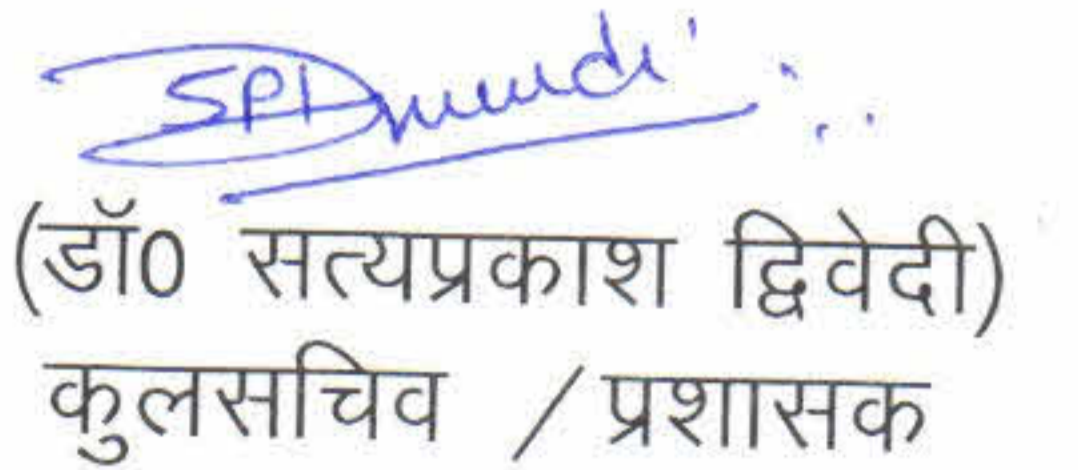 SPDwivedi
(डॉ0 सत्यप्रकाश द्विवेदी)
कुलसचिव / प्रशासक